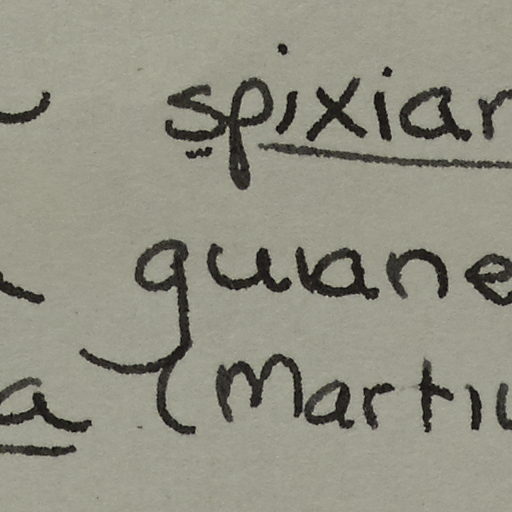 spixian
guiane
a (Martiu